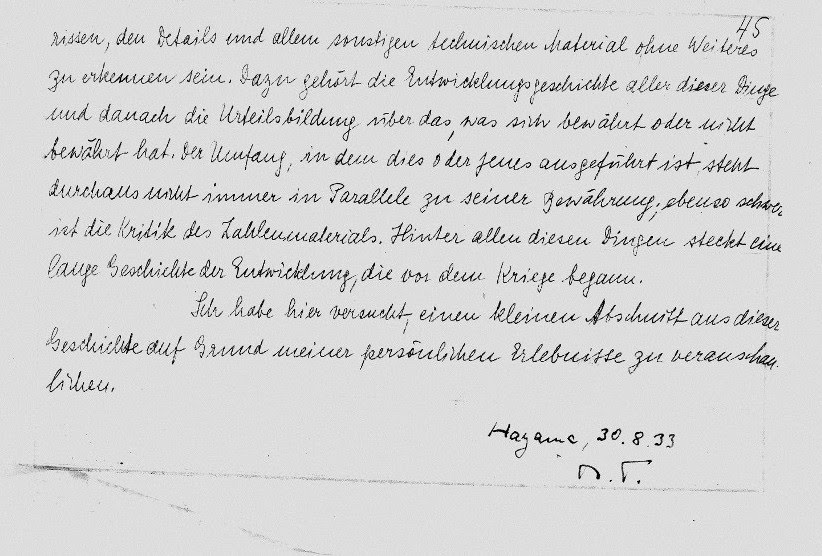 45
rissen, den Details und allem sonstigen technischen Material ohne Weiteres
zu erkennen sein. Dazu gehört die Entwicklungsgeschichte aller dieser Dinge
und danach die Urteilsbildung über das, was sich bewährt oder nicht
bewährt hat. Der Umfang, in dem dies oder jenes ausgeführt ist, steht
durchaus nicht immer in Parallele zu seiner Bewährung; ebenso schwer
ist die Kritik des Zahlenmaterials. Hinter allen diesen Dingen steckt eine
lange Geschichte der Entwicklung, die vor dem Kriege begann.
Ich habe hier versucht, einen kleinen Abschnitt aus dieser
Geschichte auf Grund meiner persönlichen Erlebnisse zu veranschau
lichen.
Hayama, 30.8.33